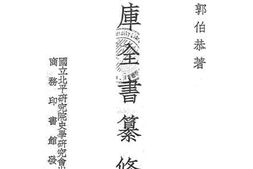 郭伯恭著
庫全書纂修
國立北平研究院史學研究會
商務印書館發